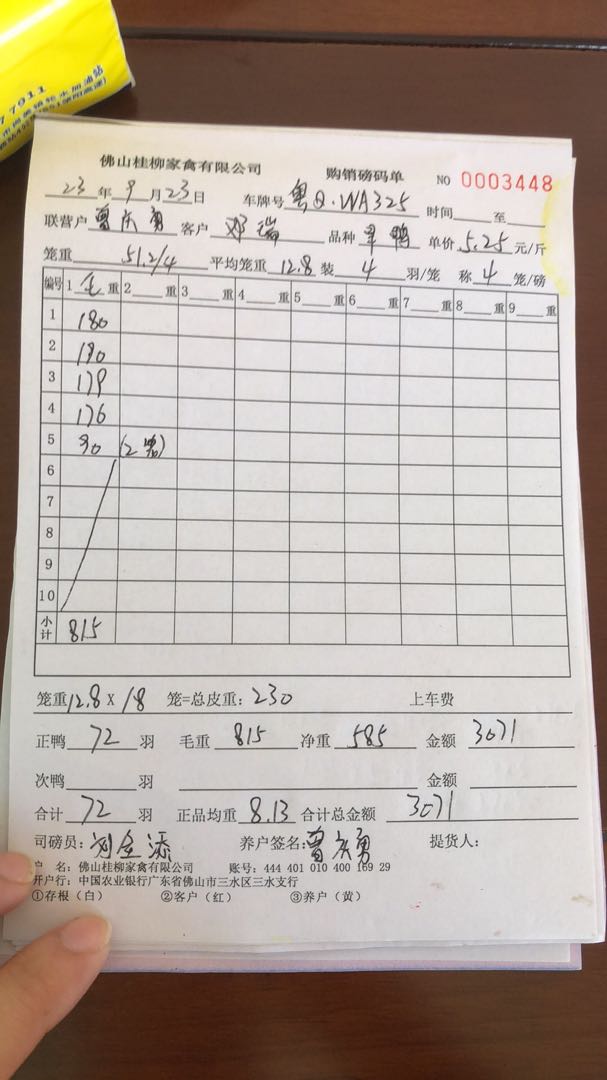 7 7911
佛山桂柳家禽有限公司 购销磅码单 NO 0003448
23 年 9 月 23 日 车牌号 粤Q·WA325 时间 至
联营户 曾庆勇 客户 邓瑞 品种 鸭 单价 5.25 元/斤
笼重 51.2/4 平均笼重 12.8 装 4 羽/笼 称 4 笼/磅
编号 1 毛 重 2 重 3 重 4 重 5 重 6 重 7 重 8 重 9 重
1 180
2 190
3 179
4 176
5 90 (2笼)
6
7
8
9
10
小计 815
笼重 12.8 X 18 笼=总皮重: 230 上车费
正鸭 72 羽 毛重 815 净重 585 金额 3071
次鸭 羽 金额
合计 72 羽 正品均重 8.13 合计总金额 3071
司磅员: 刘金添 养户签名: 曾庆勇 提货人:
户 名: 佛山桂柳家禽有限公司 账号: 444 401 010 400 169 29
开户行: 中国农业银行广东省佛山市三水区三水支行
①存根（白） ②客户（红） ③养户（黄）